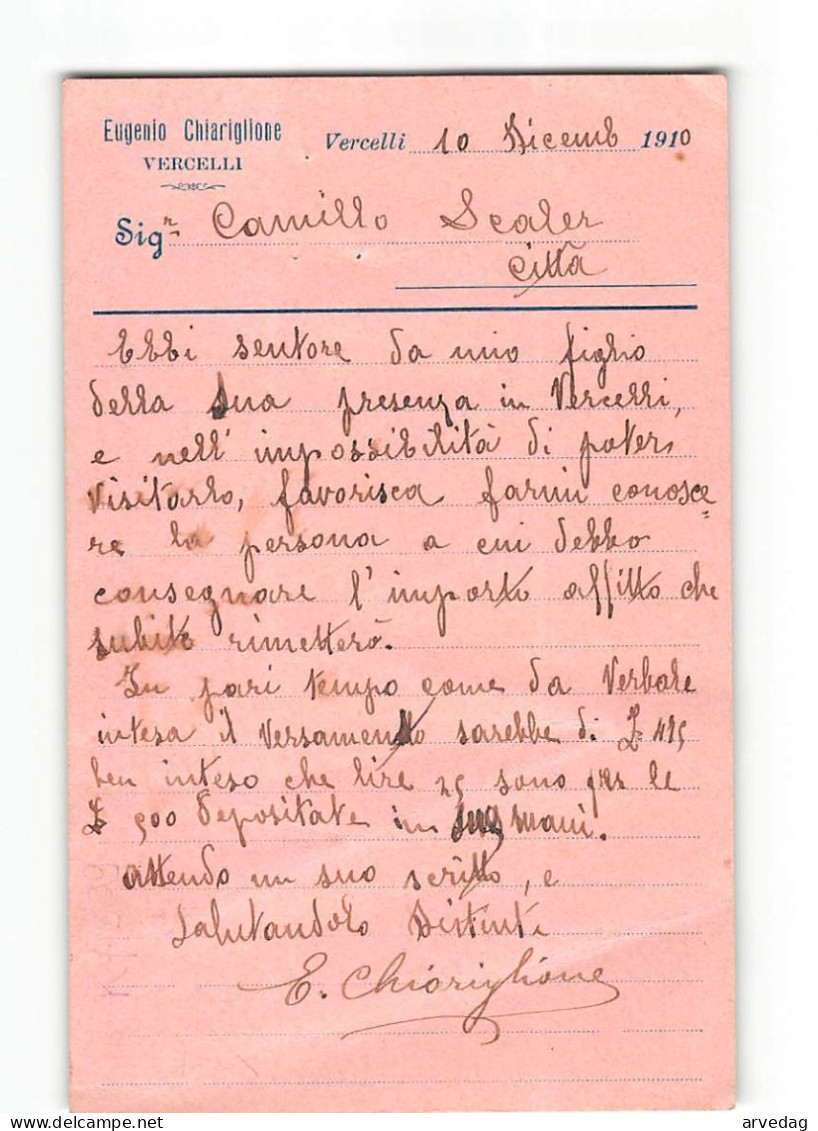 Eugenio Chiariglione
VERCELLI
Vercelli 10 Dicemb 1910
Sigr Camillo Scaler
Città
Ebbi sentore da mio figlio
della Sua presenza in Vercelli,
e nell' impossibilità di poter
visitarlo, favorisca farmi conosce=
re la persona a cui debbo
consegnare l'importo affitto che
subito rimetterò.
In pari tempo come da Verbale
intesa il versamento sarebbe di £ 475
ben inteso che lire 25 sono per le
£ 500 depositate in sue mani.
attendo un suo scritto, e
Salutandolo Distinti
E. Chiariglione
delcampe.net
arvedag